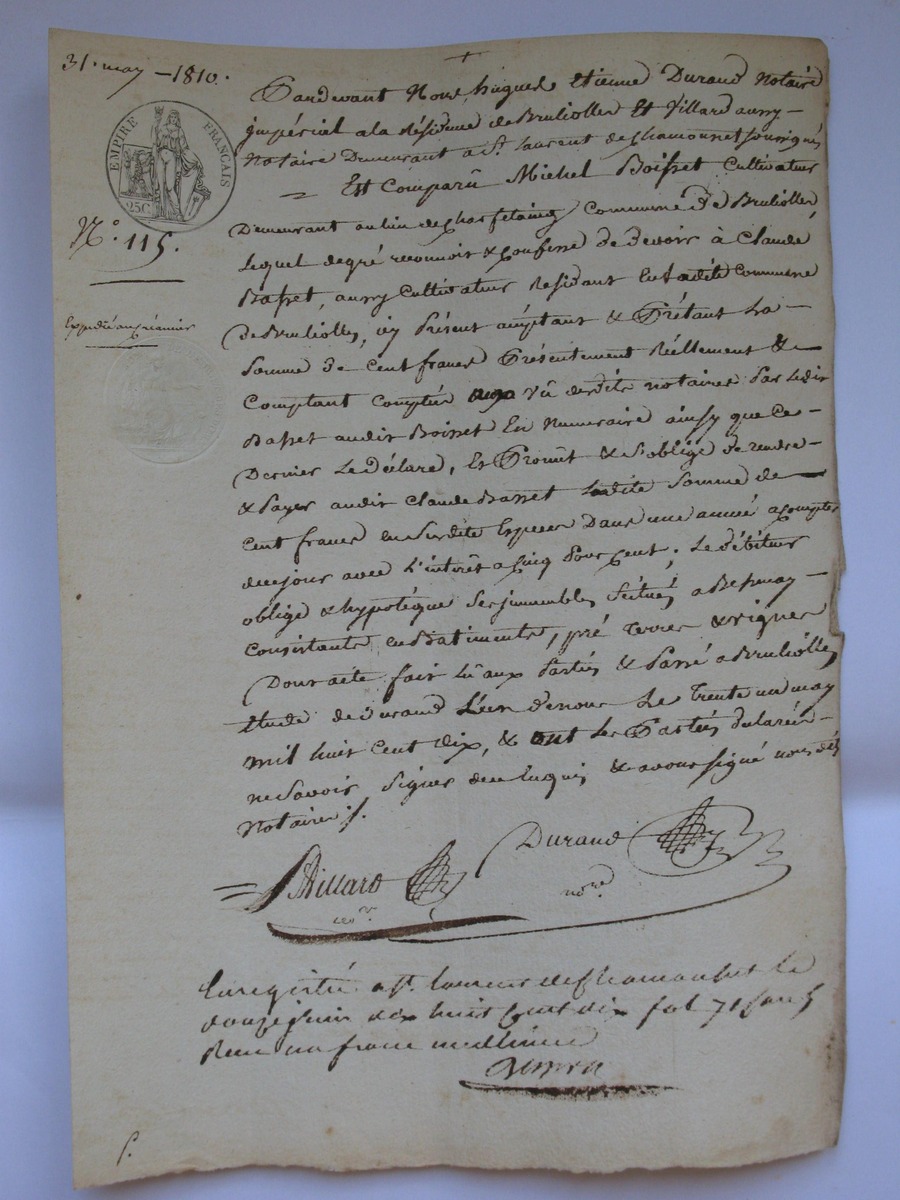 31. may - 1810.
EMPIRE FRANÇAIS
25C
N.° 115.
Expedié au créancier
Pardevant Nous hugues Etienne Durand Notaire
impérial a la Résidence de Brullioles Et Villard aussy
Notaire Demeurant a St. laurent de Chamousset soussignés
= Est Comparû Michel Boisset Cultivateur
Demeurant au lieu de Commune de Brullioles,
lequel de gré reconnoit & Confesse de devoir à Claude
Basset, aussy Cultivateur Residant En ladite Commune
de Brullioles, icy Présent aceptant & Prétant la
Somme de Cent francs Présentement Réellement &
Comptant Comptée vû desdits notaires Par ledit
Basset audit Boisset En Numeraire ainsy que Ce
Dernier le déclare, Et Promet & s'oblige de rendre
& Payer audit Claude Basset ladite Somme de
Cent francs en susdite Espece Dans une année a Compter
de ce jour avec L'intérêt a Cinq Pour Cent; le débiteur
oblige & hypotéque ses immeubles Scitués a
Consistants en Batiments, pré terres & vignes
Dont acte fait lû aux Parties & Passé a Brullioles
étude de Durand L'un de nous le trente un may
mil huit Cent dix, & ont les Parties déclaré
ne Savoir Signer de ce Enquis & avons signé nous dits
Notaires /.
Villard
Durand
no.re
Enregistré a St. laurent de Chamousset le
douze juin dix huit Cent dix fol. 71
Recu un franc